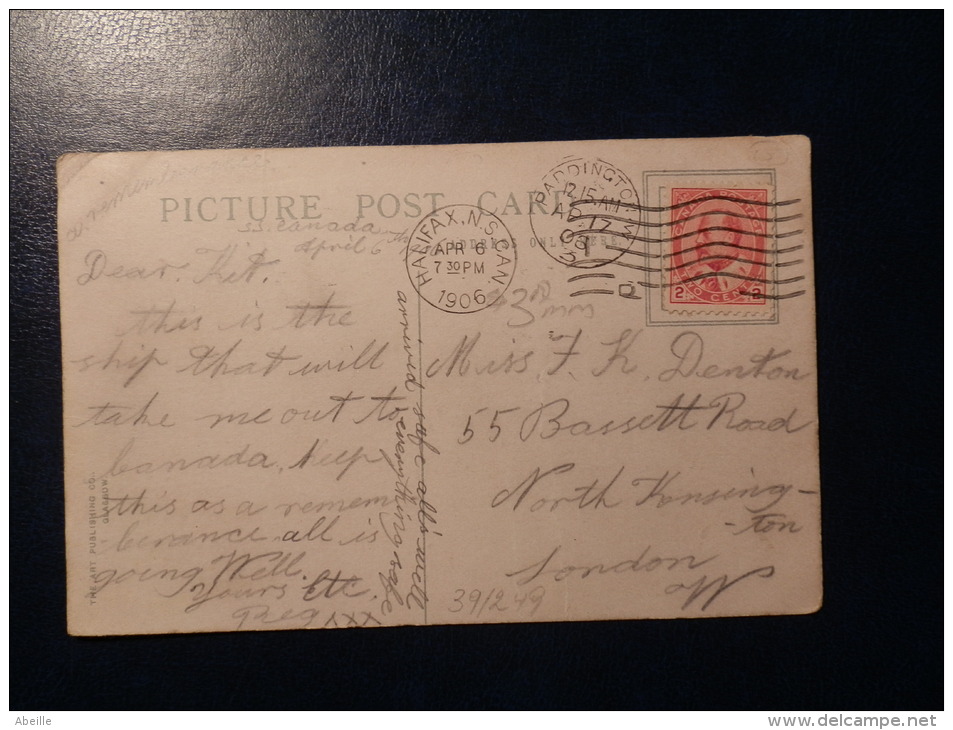 a remembrance
PICTURE POST CARD
SS. Canada
April 6th
ADDRESS ONLY HERE
HALIFAX, N.S. CAN
APR 6
7 30 PM
1906
PADDINGTON. W.
12.15. AM
AP 17
06
CANADA POSTAGE
2 TWO CENTS 2
3rd
Dear Kit.
this is the
ship that will
take me out to
Canada, Keep
this as a remem
berance all is
going Well.
Yours Etc.
Reg XXX
arrived safe all's well
everything safe
Miss F. K. Denton
55 Bassett Road
North Kensing-
-ton
London
W
39/249
THE ART PUBLISHING CO.
GLASGOW
Abeille
www.delcampe.net